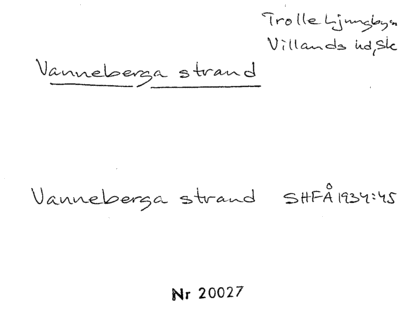 Trolle Ljungbyn
Villands hd, Sk
Vanneberga strand
Vanneberga strand SHFÅ 1934:45
Nr 20027